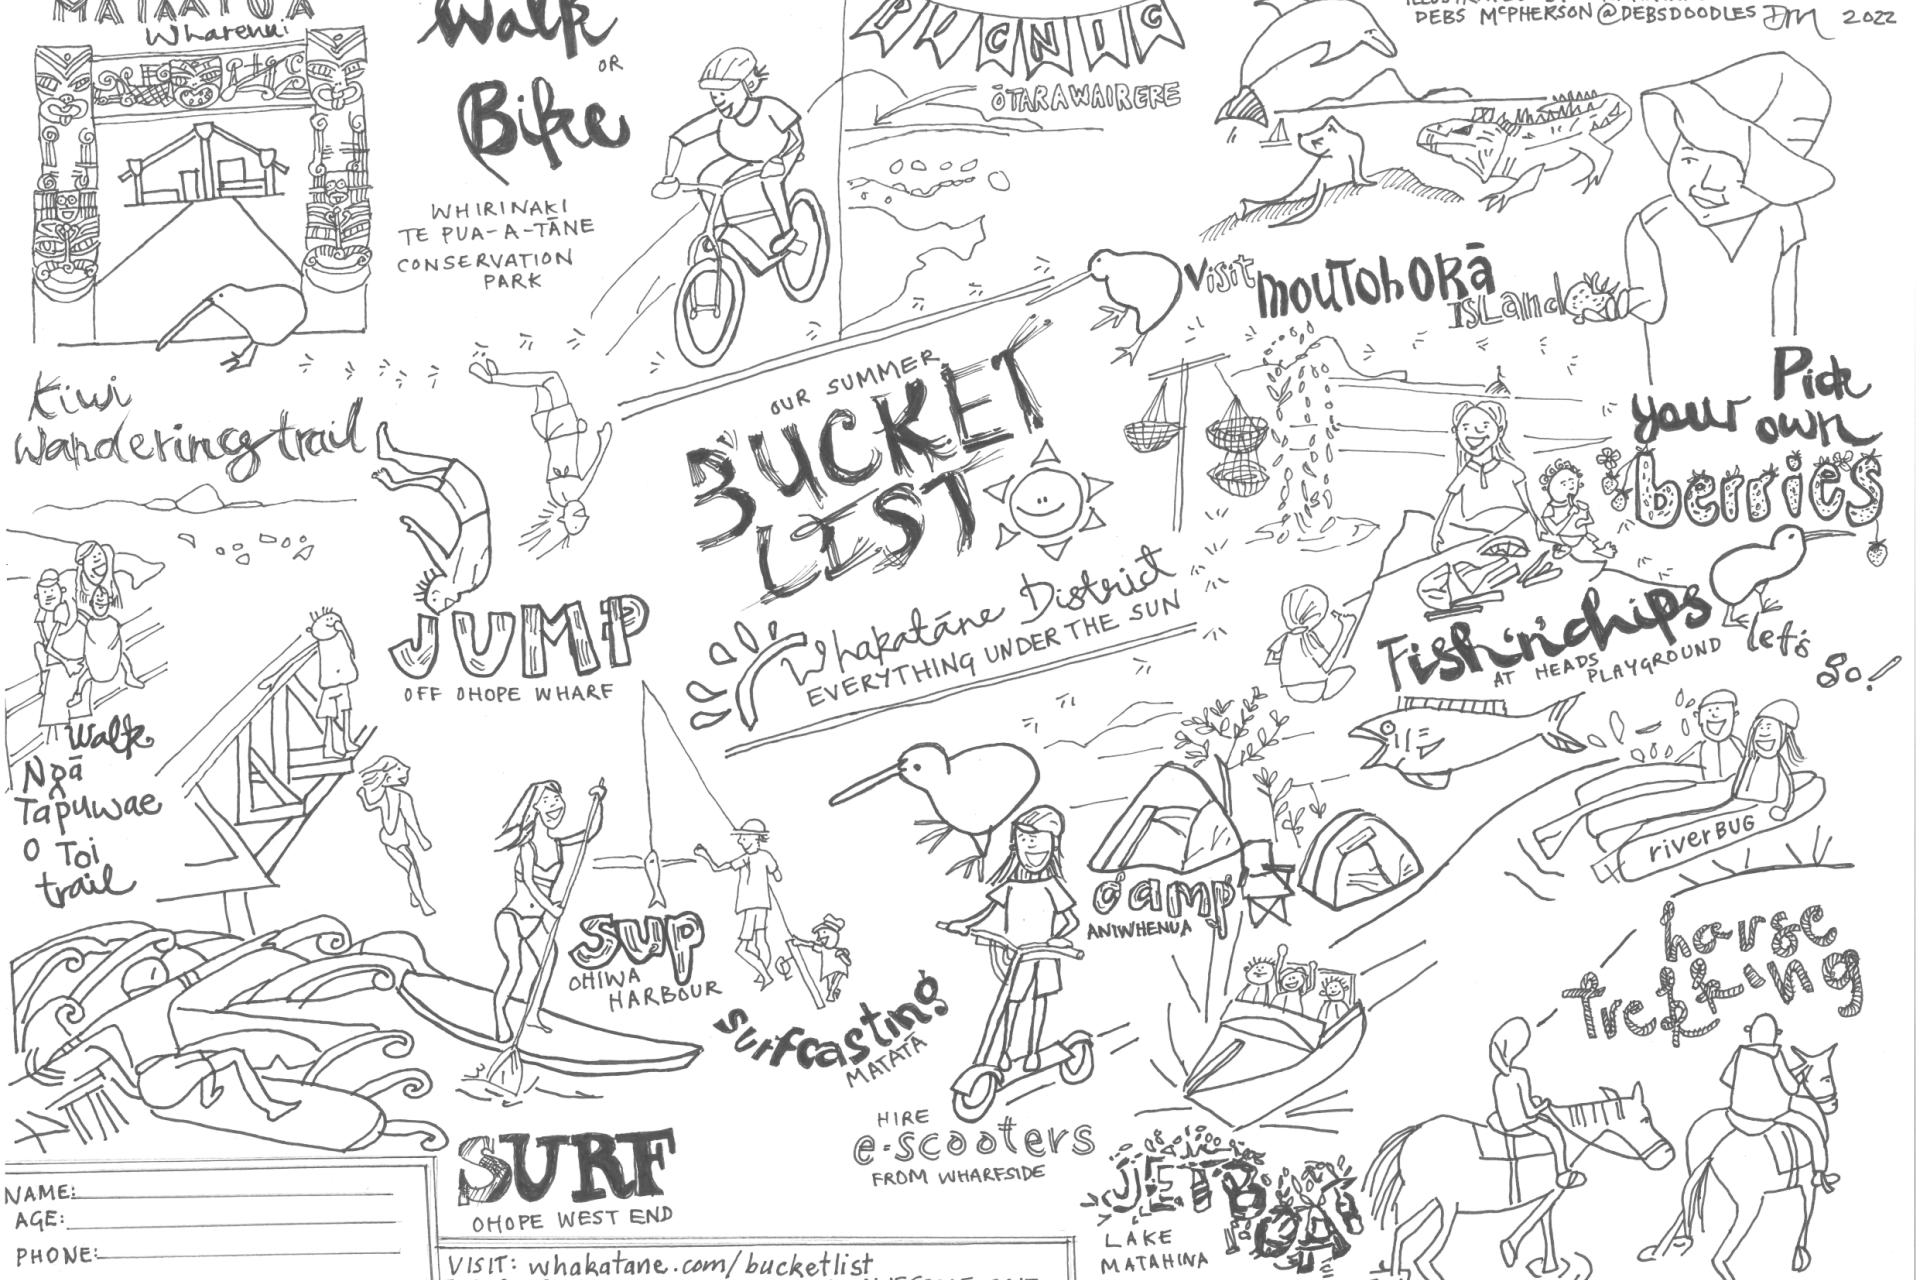 MATAATUA
Wharenui
Walk
OR
Bike
WHIRINAKI
TE PUA-A-TĀNE
CONSERVATION
PARK
PICNIC
ŌTARAWAIRERE
DEBS McPHERSON @DEBSDOODLES DM 2022
Visit MOUTOHORĀ
ISLAND
Kiwi
Wandering trail
Pick
your own
berries
OUR SUMMER
BUCKET
LIST
Whakatāne District
EVERYTHING UNDER THE SUN
JUMP
OFF OHOPE WHARF
Fish'n'chips
AT HEADS
PLAYGROUND
let's
go!
Walk
Ngā
Tapuwae
O Toi
trail
riverBUG
SUP
OHIWA
HARBOUR
Surfcasting
MATATĀ
camp
ANIWHENUA
horse
trekking
HIRE
e-scooters
FROM WHARFSIDE
SURF
OHOPE WEST END
JETBOAT
LAKE
MATAHINA
NAME:
AGE:
PHONE:
VISIT: whakatane.com/bucketlist